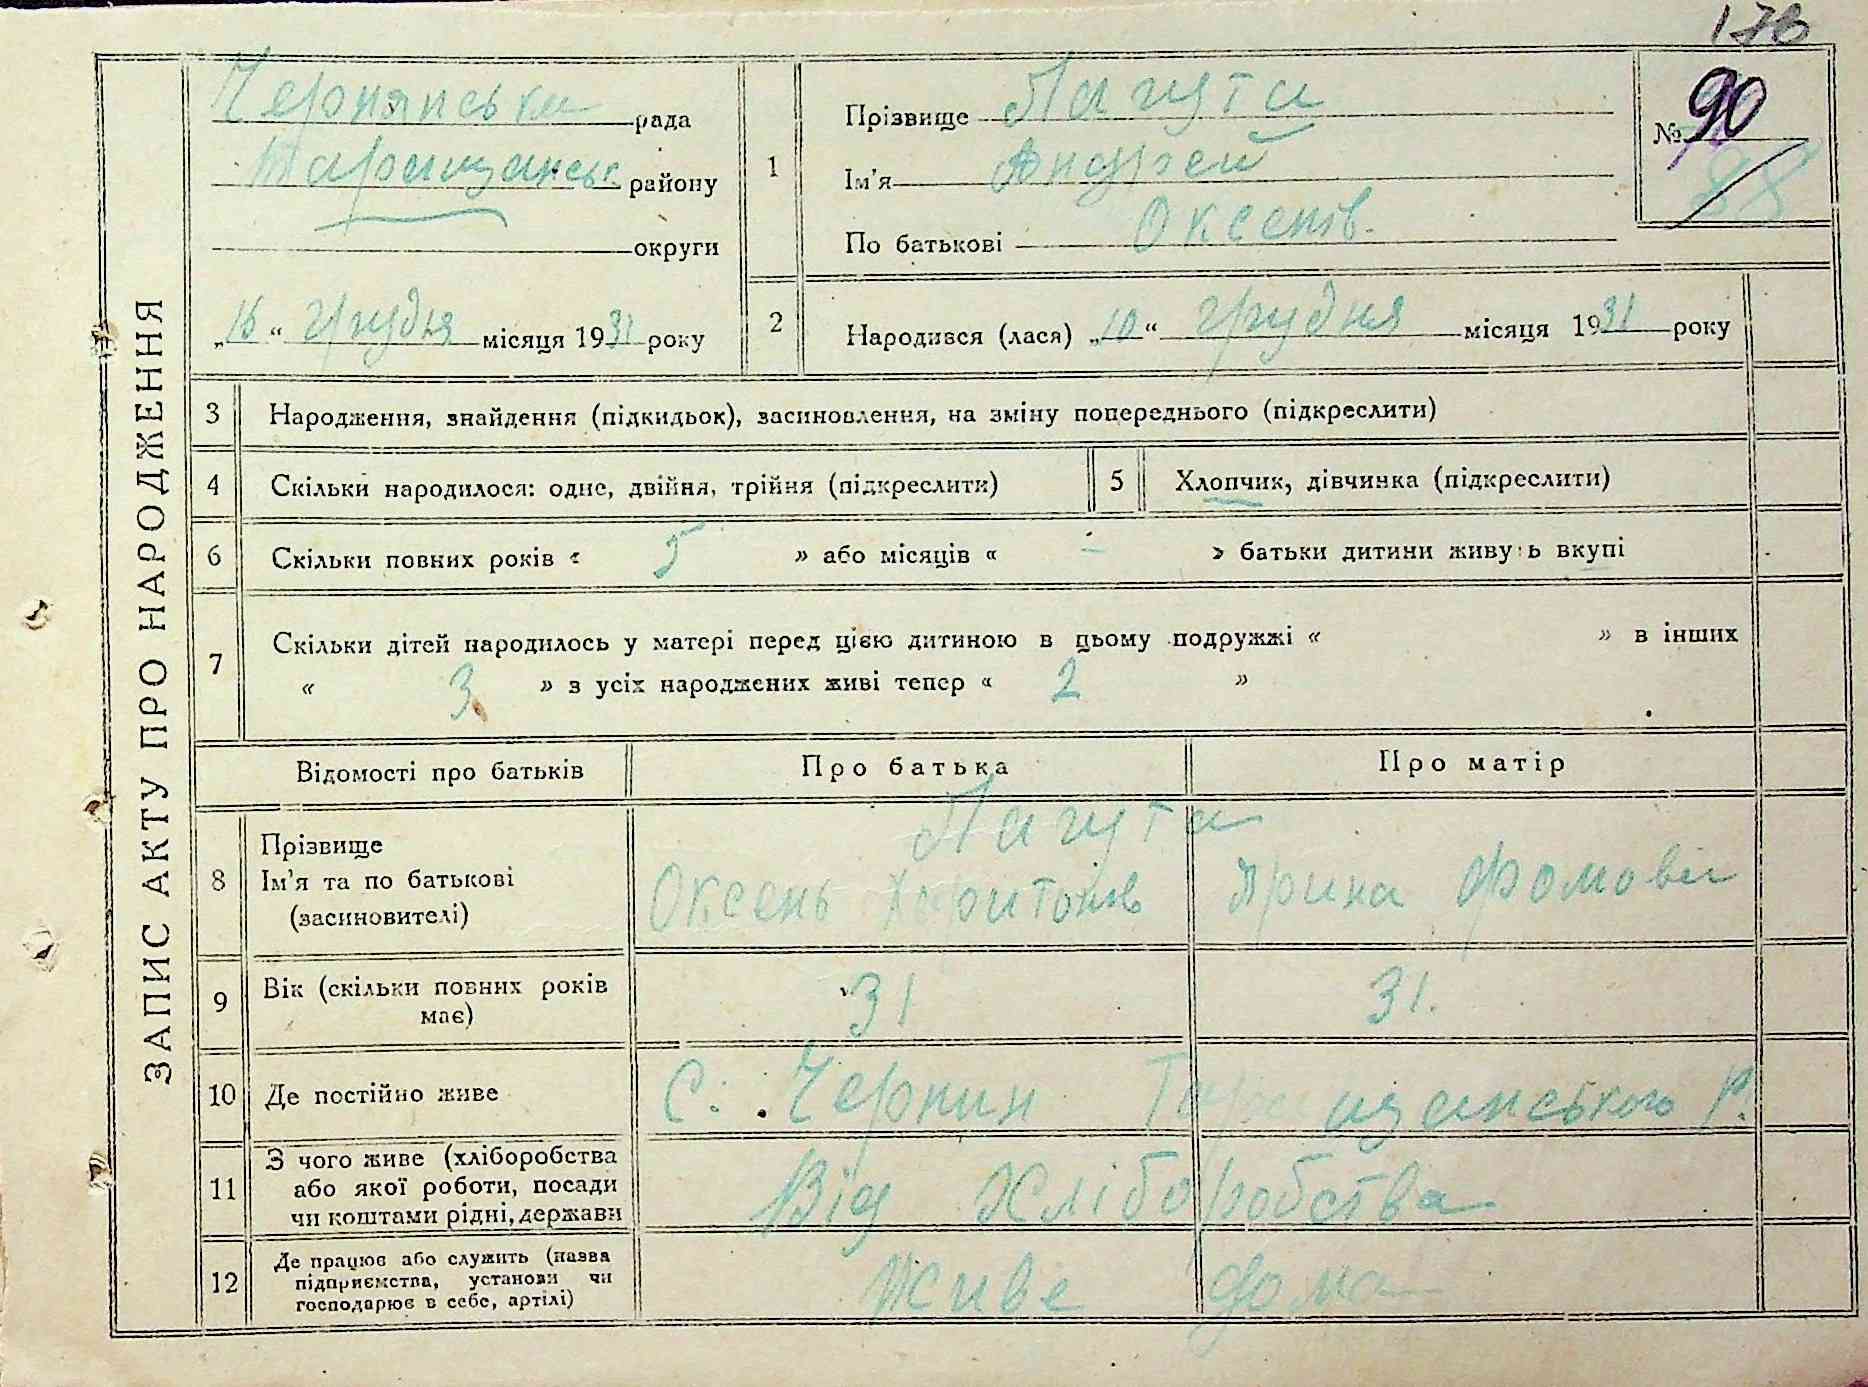 176
ЗАПИС АКТУ ПРО НАРОДЖЕННЯ
Чернянська рада
Таращанськ. району
округи
„16“ грудня місяця 1931 року
1
Прізвище Лагута
Ім'я Андрей
По батькові Оксенів.
№ 90
88
2
Народився (лася) „10“ грудня місяця 1931 року
3 Народження, знайдення (підкидьок), засиновлення, на зміну попереднього (підкреслити)
4 Скільки народилося: одне, двійня, трійня (підкреслити)
5 Хлопчик, дівчинка (підкреслити)
6 Скільки повних років « 5 » або місяців « – » батьки дитини живуть вкупі
7 Скільки дітей народилось у матері перед цією дитиною в цьому подружжі « » в інших
« 3 » з усіх народжених живі тепер « 2 »
Відомості про батьків Про батька Про матір
8 Прізвище
Ім'я та по батькові
(засиновителі)
Лагута
Оксень Харитонів Ярина Фомовна
9 Вік (скільки повних років
має)
31 31.
10 Де постійно живе С. Чернин Таращанського р.
11 З чого живе (хліборобства
або якої роботи, посади
чи коштами рідні, держави
Від Хліборобства
12 Де працює або служить (назва
підприємства, установи чи
господарює в себе, артілі)
Живе дома